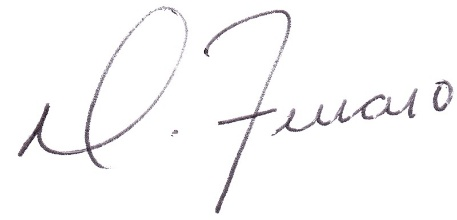 D. Ferraro